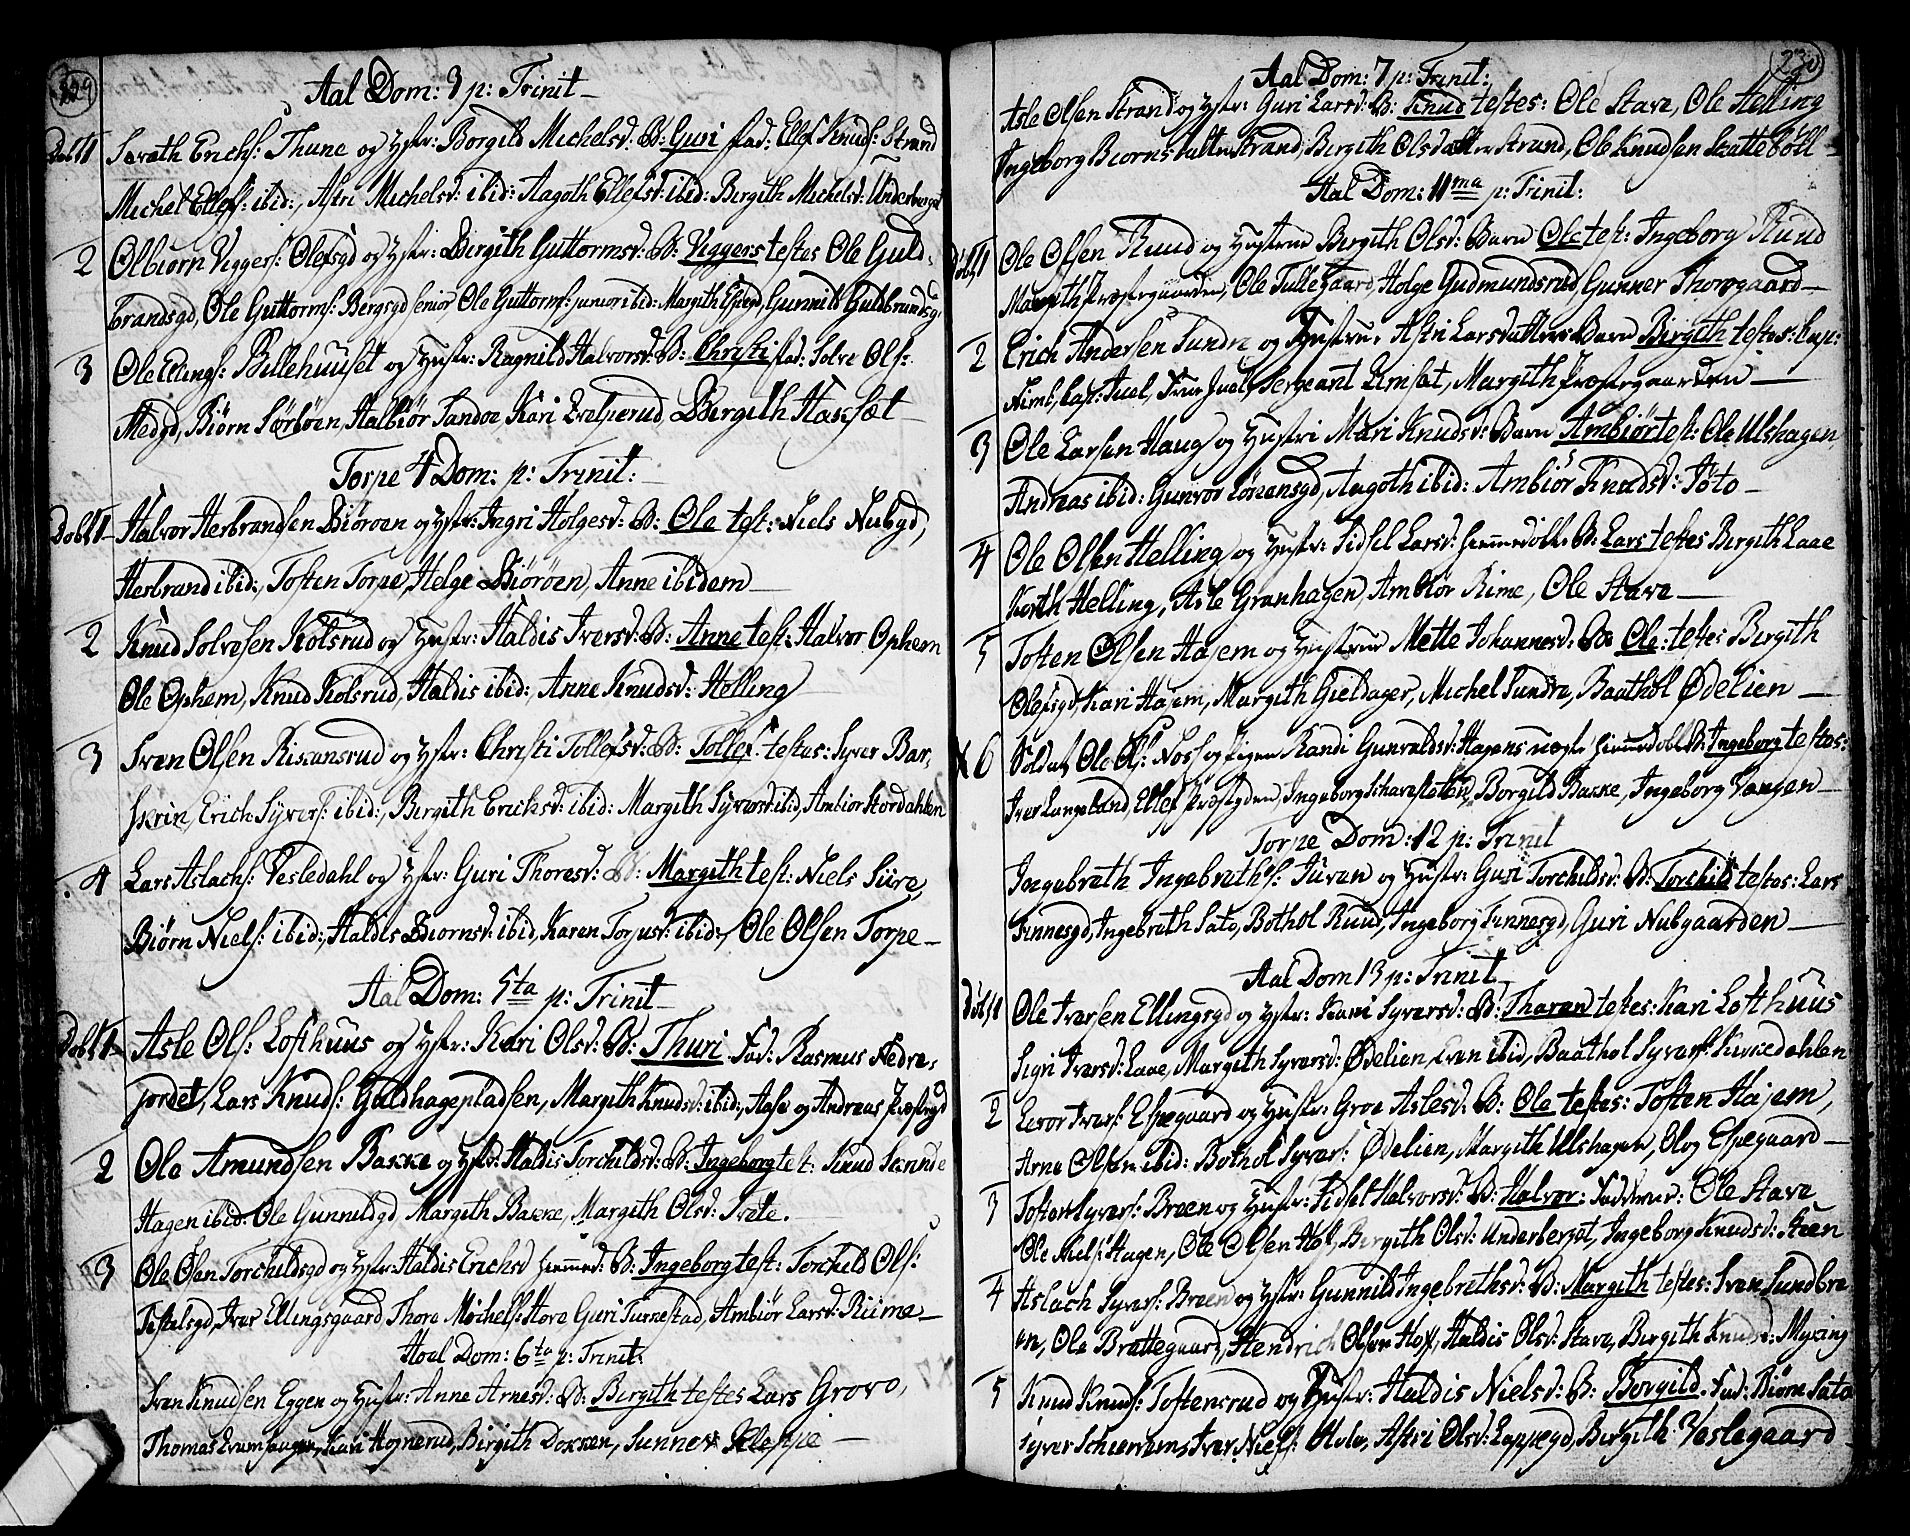 229
Aal Dom: 3 p: Trinit
Døbt 1 Seræth Erichs: Thune og Hstr: Borgild Michelsd: B: Guri fad: Ellef Knuds: Strand
Michel Ellefs: ibid:, Astri Michelsd: ibid: Aagoth Ellefsd: ibid: Bergith Michelsd: Underberget
2 Olbiørn Viggers: Olefsgd og Hstr: Bergith Guttormsd: B: Viggers testes Ole Guld-
brandsgd, Ole Guttorms: Bergsgd senior Ole Guttorms: junior ibid: Margith Espegd, Gunnild Guldbrandsg:
3 Ole Ellings: Bellehuuset og Hustr: Ragnild Halvorsd: B: Christi fad: Solve Ols:
Medgd, Biørn Sørbøen, Halbiør Sandoe Kari Bergith Haxsæt
Torpe 4 Dom: p: Trinit:
Døbt 1 Halvor Herbrandsen Biørøen og Hstr: Ingri Holgesd: B: Ole test: Niels Nubgd,
Herbrand ibid:, Tosten Torpe, Helge Biørøen, Anne ibidem
2 Knud Solvesen Kolsrud og Hustr: Haldis Iversd: B: Anne test: Halvor Ophem
Ole Ophem, Knud Kolsrud, Haldis ibid:, Anne Knudsd: Helling
3 Sven Olsen Rixansrud og Hstr: Christi Tollefsd: B: Tollef testes: Syver Bar-
skrin, Erich Syvers: ibid:, Bergith Erichsd: ibid: Margith Syversd: ibid, Ambiør Stordahlen
4 Lars Aslachs: Vesledahl og Hstr: Guri Thoresd: B: Margith test: Niels Siire,
Biørn Niels: ibid:, Haldis Biornsd: ibid, Karen Torjusd: ibid:, Ole Olsen Torpe
Aal Dom: 5ta p: Trinit
Døbt 1 Asle Ols: Lofthuus og Hstr: Kari Olsd: B: Thuri Fad: Rasmus Nedre-
jordet, Lars Knuds: Guldhagepladsen, Margith Knudsd: ibid:, Aase og Andreas Præstegd
2 Ole Amundsen Baxke og Hstr: Haldis Torchildsd: B: Ingeborg test: Knud Skrinde
Hagen ibid: Ole Gunnildgd Margith Baxke, Margith Olsd: Trete.
3 Ole Olsen Torchildsgd og Hstr: Haldis Erichsd hiemmed: B: Ingeborg test: Torchild Ols:
Iver Ellingsgaard Thore Michels: Hove Guri Turrestad, Ambiør Larsd: Riime
Hoal Dom: 6ta p: Trinit:
Sven Knudsen Eggen og Hustr: Anne Arnesd: B: Bergith testes Lars Grovo,
Thomas Kari Hognerud, Birgith Doxken, Sunnev Kleppe
230
Aal Dom: 7 p: Trinit:
Asle Olsen Strand og Hstr: Guri Larsd: B: Knud testes: Ole Stave, Ole Helling
Ingeborg Biørnsdatter Strand, Bergith Olsdatter Strand, Ole Knudsen Skattebøll
Aal Dom: 11ma p: Trinit:
Døbt 1 Ole Olsen Ruud og Hustrue Bergith Olsd: Barn Ole test: Ingeborg Ruud
Margith Præstegaarden, Ole Tullegaard, Holge Gudmundsrud, Gunner Thoregaard
2 Erich Andersen Sundre og Hustrue Astri Larsdatter Barn Birgith testes: Cap:
Juel, Frue Juel, Sergeant Lemset, Margith Præstegaarden
3 Ole Larsen Haug og Hustri Mari Knudsd: Barn Ambiør test: Ole Ulshagen,
Andreas ibid: Gunvor Lørensgd, Angoth ibid: Ambiør Knudsd: Tøto
4 Ole Olsen Helling og Hustr: Sidsel Larsd: hiemmedøbt B: Lars testes Bergith Laae
Helling, Asle Granhagen, Ambiør Rime, Ole Stave
5 Tosten Olsen Hajem og Hustrue Mette Johannesd: B: Ole: testes Bergith
Olefsgd, Kari Hajem, Margith Gieldager, Michel Sundre, Baathol Ødelien
X 6 Soldat Ole Ols: Noss og Pigen Randi Gunvaldsd: Hagens uægte hiemmedøbt B: Ingeborg testes:
Iver Langeland, Ellef Præstgden, Ingeborg Scharestolen, Borgild Baxke, Ingeborg Vangen
Torpe Dom: 12 p: Trinit
Ingebreth Ingebreths: Juven og Hustr: Guri Torchildsd: B: Torchild testes: Lars
Finnesgd, Ingebreth Sato, Bothol Ruud, Ingeborg Finnesgd, Guri Nubgaarden
Aal Dom 13 p: Trinit
Døbt 1 Ole Iversen Ellingsgd og Hstr: Kari Syversd: B: Tharan testes: Kari Lofthuus
Sigri Iversd: Laae, Margith Syversd: Ødelien, Even ibid, Baathol Syvers: Kirkedahlen
2 Levor Ivers: Espegaard og Hustr: Groe Aslesd: B: Ole testes: Tosten Hajem,
Arne Olsen ibid: Bothol Syvers: Ødelien, Margith Ulshagen, Olog Espegaard
3 Tosten Syvers: Breen og Hustr: Sidsel Halvorsd: B: Halvor: Faddere: Ole Stave
Ole Niels: Hagen, Ole Olsen Hof, Bergith Olsd: Underberget, Ingeborg Knudsd: Steen
4 Aslach Syvers: Breen og Hstr: Gunnild Ingebrethsd: B: Margith testes: Sven Sundbre
en, Ole Brattegaard, Hendrich Olsen Hoff, Haldis Olsd: Stave, Bergith Knudsd: Myking
5 Knud Knuds: Tostensrud og Hustr: Haldis Nielsd: B: Borgild. Fad: Biørn Sato
Syver Iver Niels: Hole, Astri Olsd: Lappegd, Bergith Veslegaard